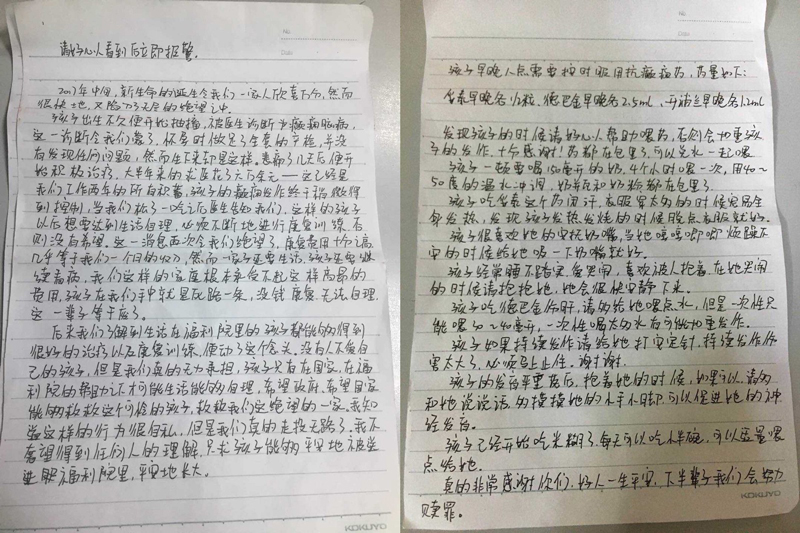 No
Date
请好心人看到后立即报警。
2017年中旬，新生命的诞生令我们一家人欣喜万分，然而
很快地，又陷入了无尽的绝望之中。
孩子出生不久便开始抽搐，被医生诊断为癫痫脑病，
这一诊断令我们懵了，怀孕时做足了全套的产检，并没
有发现任何问题，然而生下来却是这样。悲痛了几天后便开
始积极治疗。大半年来的求医花了大万余元——这已经是
我们工作两年的所有积蓄。孩子的癫痫发作终于稍微得
到控制，当我们松了一口气后医生告知我们，这样的孩子
以后想要达到生活自理，必须不断地进行康复训练，否
则没有希望。这一消息再次令我们绝望了，康复费用十分高，
几乎等于我们一个月的収入，然而一家子要生活，孩子还要继
续看病，我们这样的家庭根本承受不起这样高昂的
费用，孩子在我们手中就是死路一条，没钱康复，无法自理，
这一辈子等于废了。
后来我们了解到生活在福利院里的孩子都能够得到
很好的治疗以及康复训练，便动了这个念头，没有人不爱自
己的孩子，但是我们真的无力承担，孩子只有在国家，在福
利院的帮助之下才可能生活能够自理，希望政府，希望国家
能够救救这个可怜的孩子，救救我们这绝望的一家。我知
道这样的行为很自私，但是我们真的走投无路了。我不
奢望得到任何人的理解，只求孩子能够平安地被送
进福利院里，平安地长大。
KOKUYO
No
Date
孩子早晚八点需要按时服用抗癫痫药，药量如下：
早晚各 粒，德巴金早晚各2.5ml，开浦兰早晚各1.2ml
发现孩子的时候请好心人帮助喂药，否则会加重孩
子的发作，十分感谢！药都在包里了，可以兑水一起喂
孩子一顿要喝150毫升的奶，4个小时喂一次，用40～
50度的温水冲调，奶瓶和奶粉都在包里了。
孩子吃 这个药闭汗，衣服穿太多的时候容易全
身发热，发现孩子发热发烧的时候脱点衣服就好。
孩子很喜欢她的安抚奶嘴，当她哼哼唧唧烦躁不
安的时候给她吸一下奶嘴就好。
孩子经常睡不踏实，爱哭闹，喜欢被人抱着，在她哭闹
的时候请抱抱她，她会很快安静下来。
孩子吃德巴金伤肝，请多给她喂点水，但是一次性只
能喂30～40毫升，一次性喝太多水有可能加重发作。
孩子如果持续发作请给她打安定针，持续发作伤
害太大了，必须马上止住。谢谢。
孩子的发育迟缓落后，抱着她的时候，如果可以，请多
和她说说话，多摸摸她的小手小脚，可以促进她的神
经发育。
孩子已经开始吃米糊了，每天可以吃小半碗，可以适量喂
点给她。
真的非常感谢你们，好人一生平安，下半辈子我们会努力
赎罪。
KOKUYO